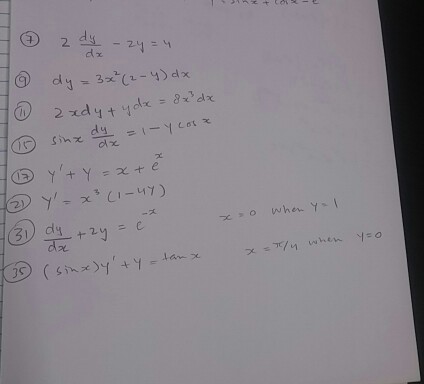 ⑦ 2 dy/dx - 2y = 4
⑨ dy = 3x²(2-y)dx
⑪ 2xdy + ydx = 8x³dx
⑮ sinx dy/dx = 1 - y cos x
⑰ y' + y = x + e^x
㉑ y' = x³(1-4y)
㉛ dy/dx + 2y = e^-x x=0 when y=1
㉟ (sinx)y' + y = tan x x = π/4 when y=0